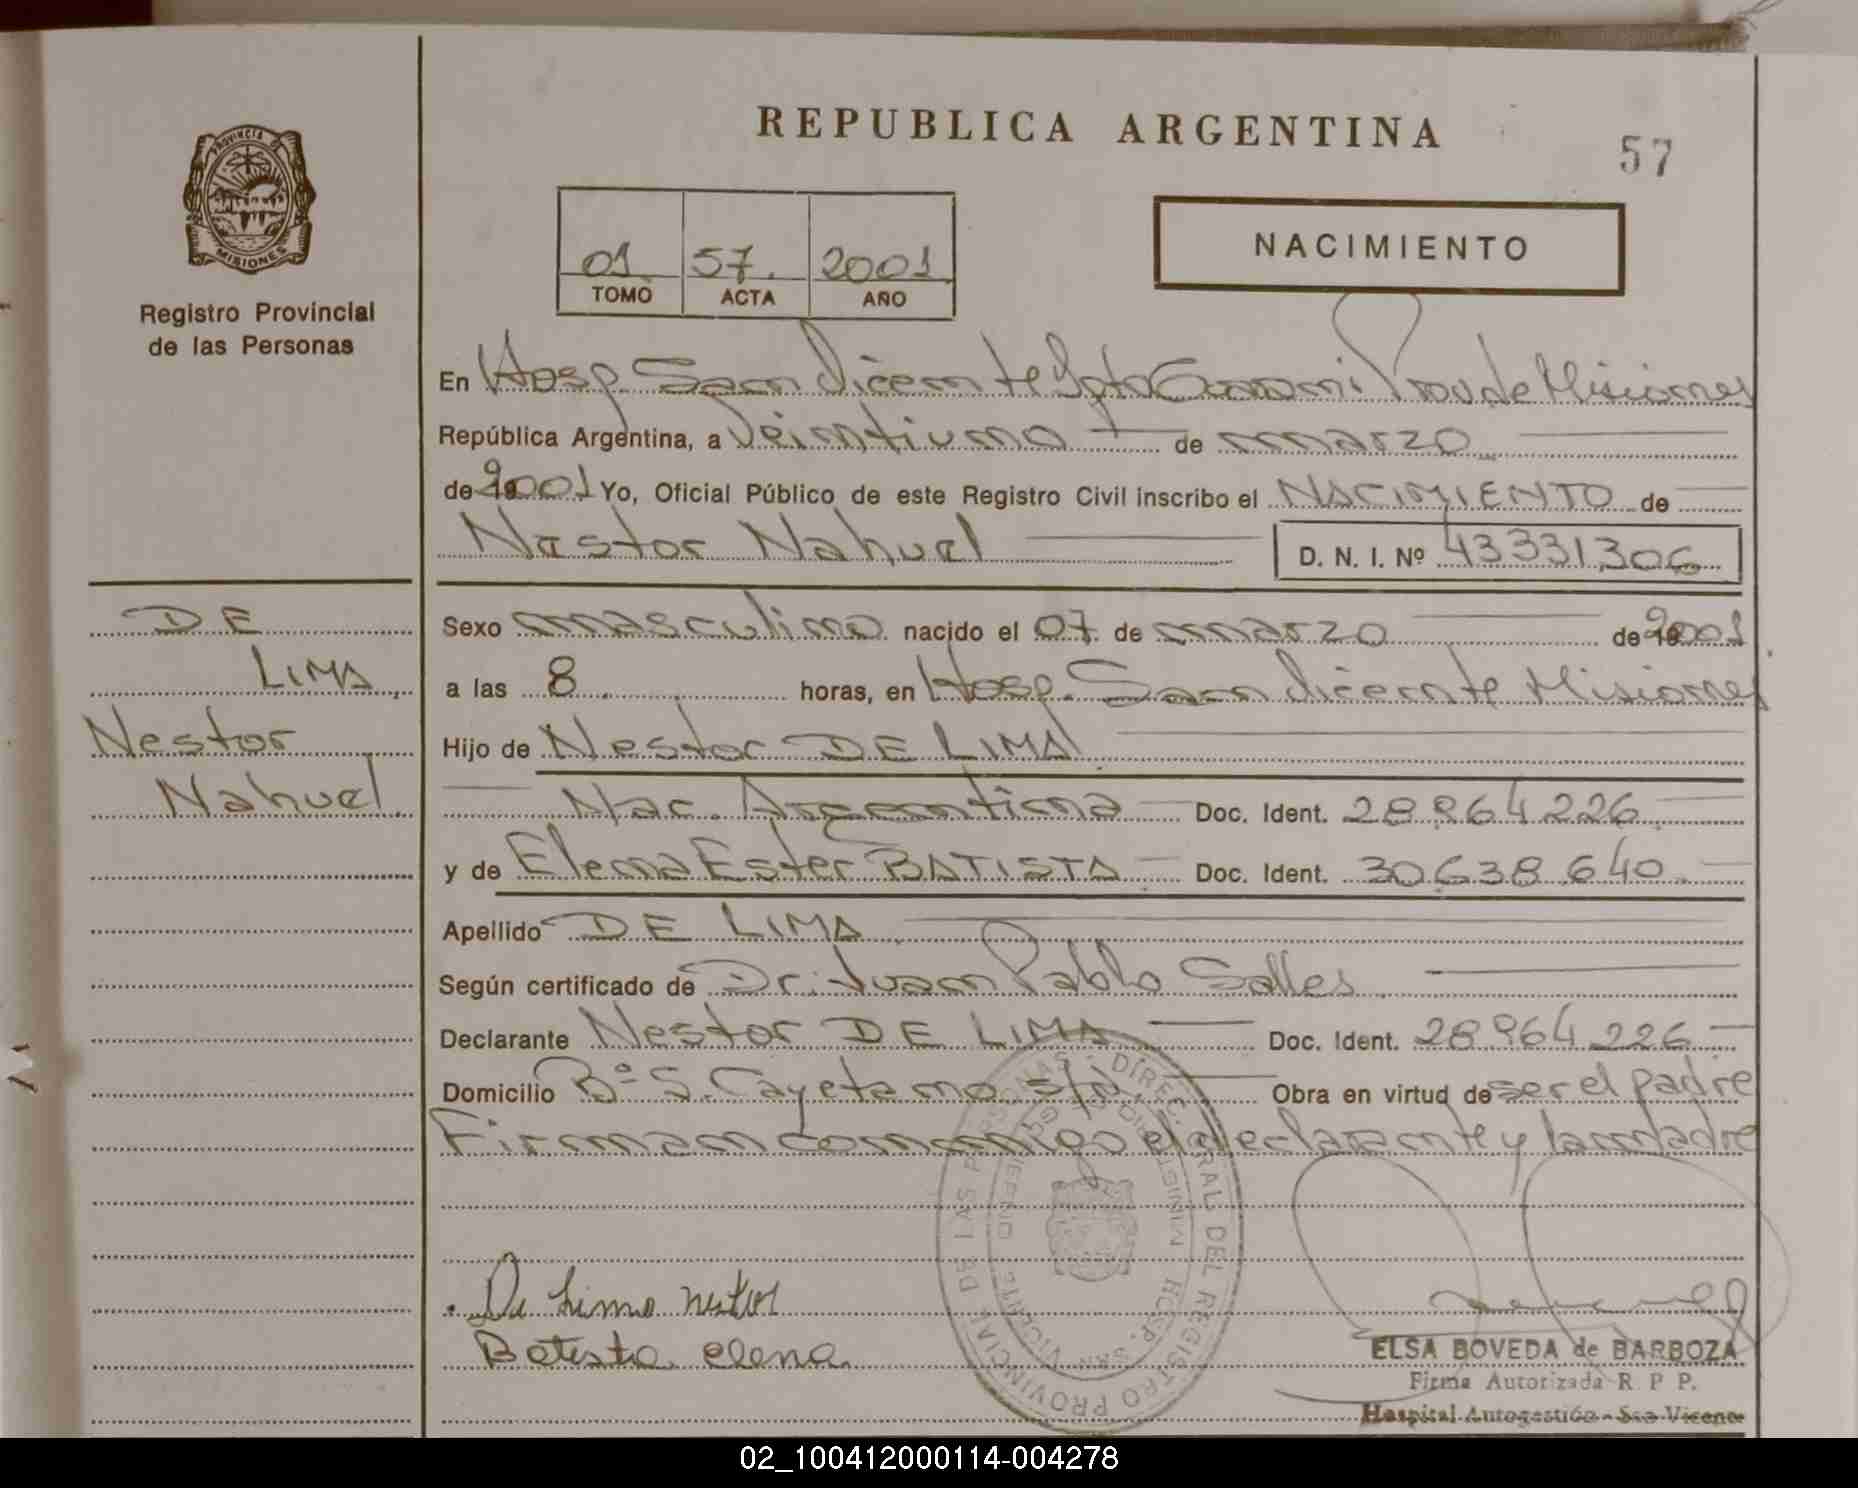 REPUBLICA ARGENTINA
57
PROVINCIA DE MISIONES
Registro Provincial
de las Personas
01 57. 2001
TOMO ACTA AÑO
NACIMIENTO
En Hosp. San Vicente Dpto Guarani Prov de Misiones
República Argentina, a Veintiuno de marzo
de 2001 Yo, Oficial Público de este Registro Civil inscribo el NACIMIENTO de
Nestor Nahuel D. N. I. Nº 43331306
DE
LIMA
Nestor
Nahuel
Sexo masculino nacido el 07 de marzo de 2001
a las 8 horas, en Hosp. San Vicente Misiones
Hijo de Nestor DE LIMA
Nac. Argentina Doc. Ident. 28964226
y de Elena Ester BATISTA Doc. Ident. 30638640
Apellido DE LIMA
Según certificado de Dr. Juan Pablo Salles
Declarante Nestor DE LIMA Doc. Ident. 28964226
Domicilio Bº S. Cayetano s/nº Obra en virtud de ser el padre
Firman conmigo el declarante y la madre
De Lima Nestor
Batista elena
ELSA BOVEDA de BARBOZA
Firma Autorizada R. P. P.
Hospital Autogestión - San Vicente
DIREC. GRAL. DEL REGISTRO PROVINCIAL DE LAS PERSONAS
HOSP. SAN VICENTE
02_100412000114-004278